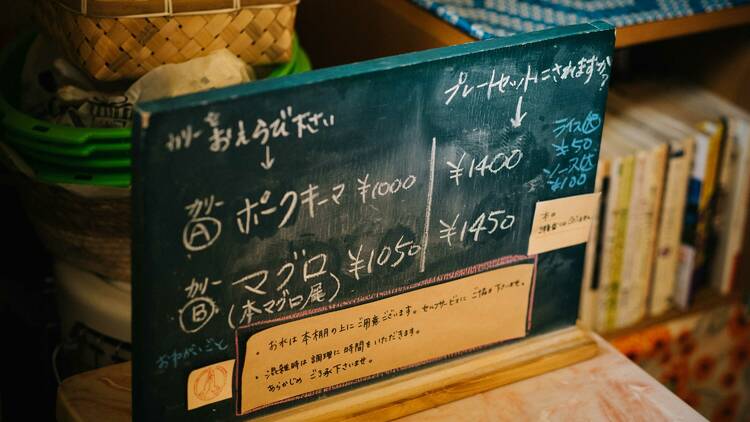 カリーをおえらび下さい
↓
プレートセットにされますか?
↓
カリーⒶ ポークキーマ ¥1000 ¥1400
カリーⒷ マグロ ¥1050 ¥1450
(本マグロ尾)
ライス大
¥50
ソース大
¥100
おねがいごと
・お水は本棚の上にご用意ございます。セルフサービスにご協力下さいませ。
・混雑時は調理に時間をいただきます。
あらかじめご了承下さいませ。